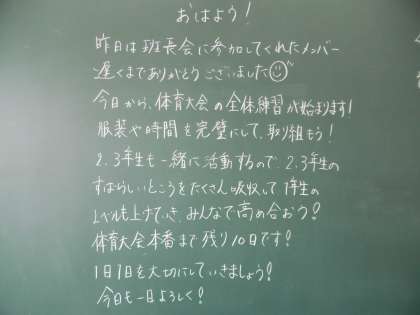 おはよう!
昨日は班長会に参加してくれたメンバー
遅くまでありがとうございました
今日から、体育大会の全体練習が始まります!
服装や時間を完璧にして、取り組もう!
2、3年生も一緒に活動するので、2、3年生の
すばらしいところをたくさん吸収して1年生の
レベルも上げていき、みんなで高め合おう!
体育大会本番まで残り10日です!
1日1日を大切にしていきましょう!
今日も一日よろしく!